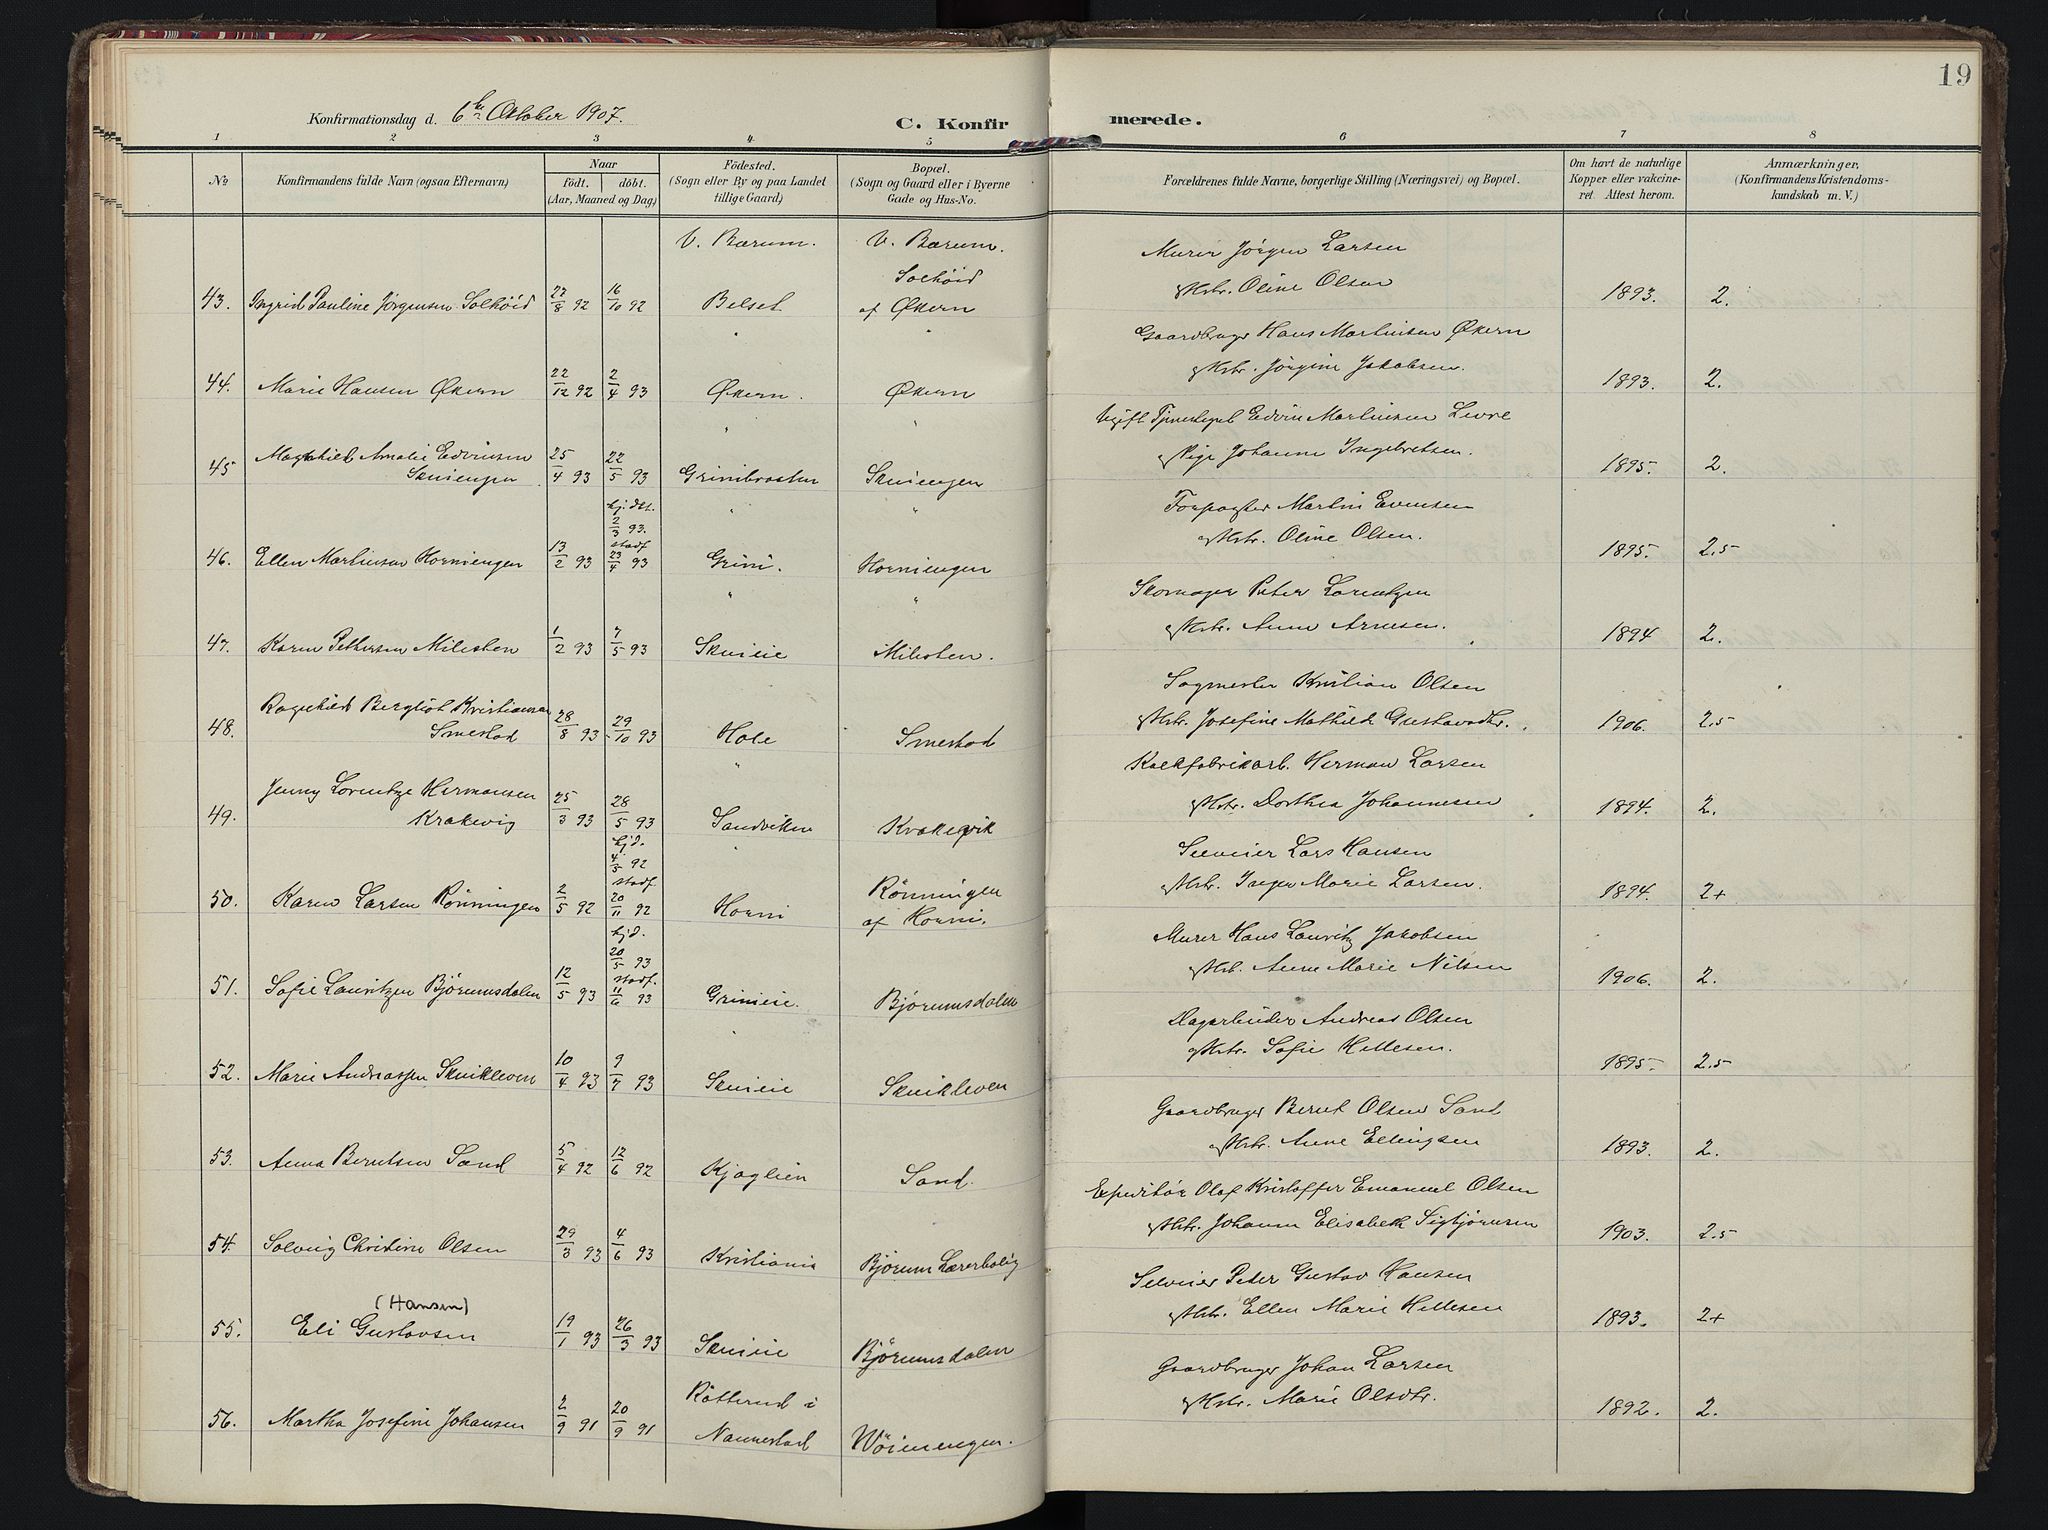 19
Konfirmationsdag d. 6te Oktober 1907.
C. Konfirmerede.
1 2 3 4 5 6 7 8
No
Konfirmandens fulde Navn (ogsaa Efternavn)
Naar
födt. döbt.
(Aar, Maaned og Dag)
Födested.
(Sogn eller By og paa Landet
tillige Gaard)
Bopæl.
(Sogn og Gaard eller i Byerne
Gade og Hus-No.
Forældrenes fulde Navne, borgerlige Stilling (Næringsvei) og Bopæl.
Om havt de naturlige
Kopper eller vakcine-
ret. Attest herom.
Anmærkninger,
(Konfirmandens Kristendoms-
kundskab m. V.)
V. Bærum. V. Bærum. Murer Jörgen Larsen
Solhöid
43. Ingrid Pauline Jörgensen Solhöid 22/8 92 16/10 92 Belset af Økern & Hstr. Oline Olsen 1893. 2.
Gaardbruger Hans Martinsen Økern
44. Marie Hansen Økern 22/12 92 2/4 93 Økern. Økern & Hstr. Jörgine Jakobsen. 1893. 2.
Ugift Edvin Martinsen Levre
45. Magnhild Amalie Edvinsen
Skuiengen 25/4 93 22/5 93 Grinibraaten Skuiengen & Pige Johanne Ingebretsen. 1895. 2.
hj. dbt.
2/3 93.
stadf. Forpagter Martin Evensen
46. Ellen Martinsen Horniengen 13/2 93 23/4 93 Grini. Horniengen & Hstr. Oline Olsen. 1895. 2.5
Skomager Peter Lorentzen
47. Karen Pettersen Milesten 1/2 93 7/5 93 Skuieie Milesten. & Hstr. Anne Arnesen. 1894 2.
Sagmester Kristian Olsen
48. Ragnhild Bergliot Kristiansen
Smestad 28/8 93 29/10 93 Hole Smestad & Hstr. Josefine Mathilde Gustavsdtr. 1906. 2.5
Kalkfabrikarb. Herman Larsen
49. Jenny Lorentze Hermansen
Krakevig 25/3 93 28/5 93 Sandviken Krakevik & Hstr. Dorthea Johannesen 1894. 2.
hjd.
4/5 92
stadf. Selveier Lars Hansen
50. Karen Larsen Rönningen 2/5 92 20/11 92 Horni Rönningen
af Horni. & Hstr. Inger Marie Larsen. 1894. 2+
hjd.
20/5 93
stadf. Murer Hans Lauritz Jakobsen
51. Sofie Lauritzen Bjørumsdalen 12/5 93 11/6 93 Grinieie. Bjørumsdalen & Hstr. Anne Marie Nilsen 1906. 2.
Dagarbeider Andreas Olsen
52. Marie Andreassen Skuikleven 10/4 93 9/7 93 Skuieie Skuikleven & Hstr. Sofie Hellesen. 1895 2.5
Gaardbruger Bernt Olsen Sand
53. Anna Berntsen Sand 5/4 92 12/6 92 Kjaglien Sand. & Hstr. Anne Ellingsen 1893. 2.
Expeditör Olaf Kristoffer Emanuel Olsen
54. Solveig Christine Olsen 29/3 93 4/6 93 Kristiania Bjørum Lærerbolig & Hstr. Johanne Elisabeth Sigbjørnsen 1903. 2.5
(Hansen) Selveier Peter Gustav Hansen
55. Eli Gustavsen 19/1 93 26/3 93 Skuieie Bjørumsdalen & Hstr. Ellen Marie Hellesen 1893. 2+
Rötterud i Gaardbruger Johan Larsen
56. Martha Josefine Johansen 2/9 91 20/9 91 Nannestad Wöienengen. & Hstr. Marie Olsdtr. 1892. 2.